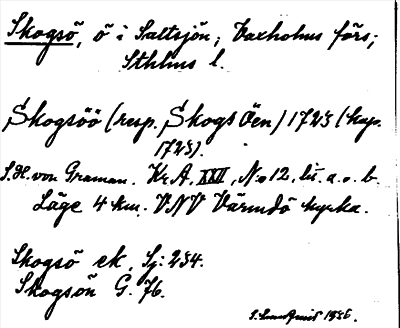 Skogsö, ö i Saltsjön, Vaxholms förs;
Sthlms l.
Skogsöö (resp. Skogs Öen) 1723 (kop.
1723).
S. H. von Graman. Kr. A. XXII, No 12. lit. a. o. b.
Läge 4 km. VNV Värmdö kyrka.
Skogsö ek. Sj: 234.
Skogsön G. 76.
1936.